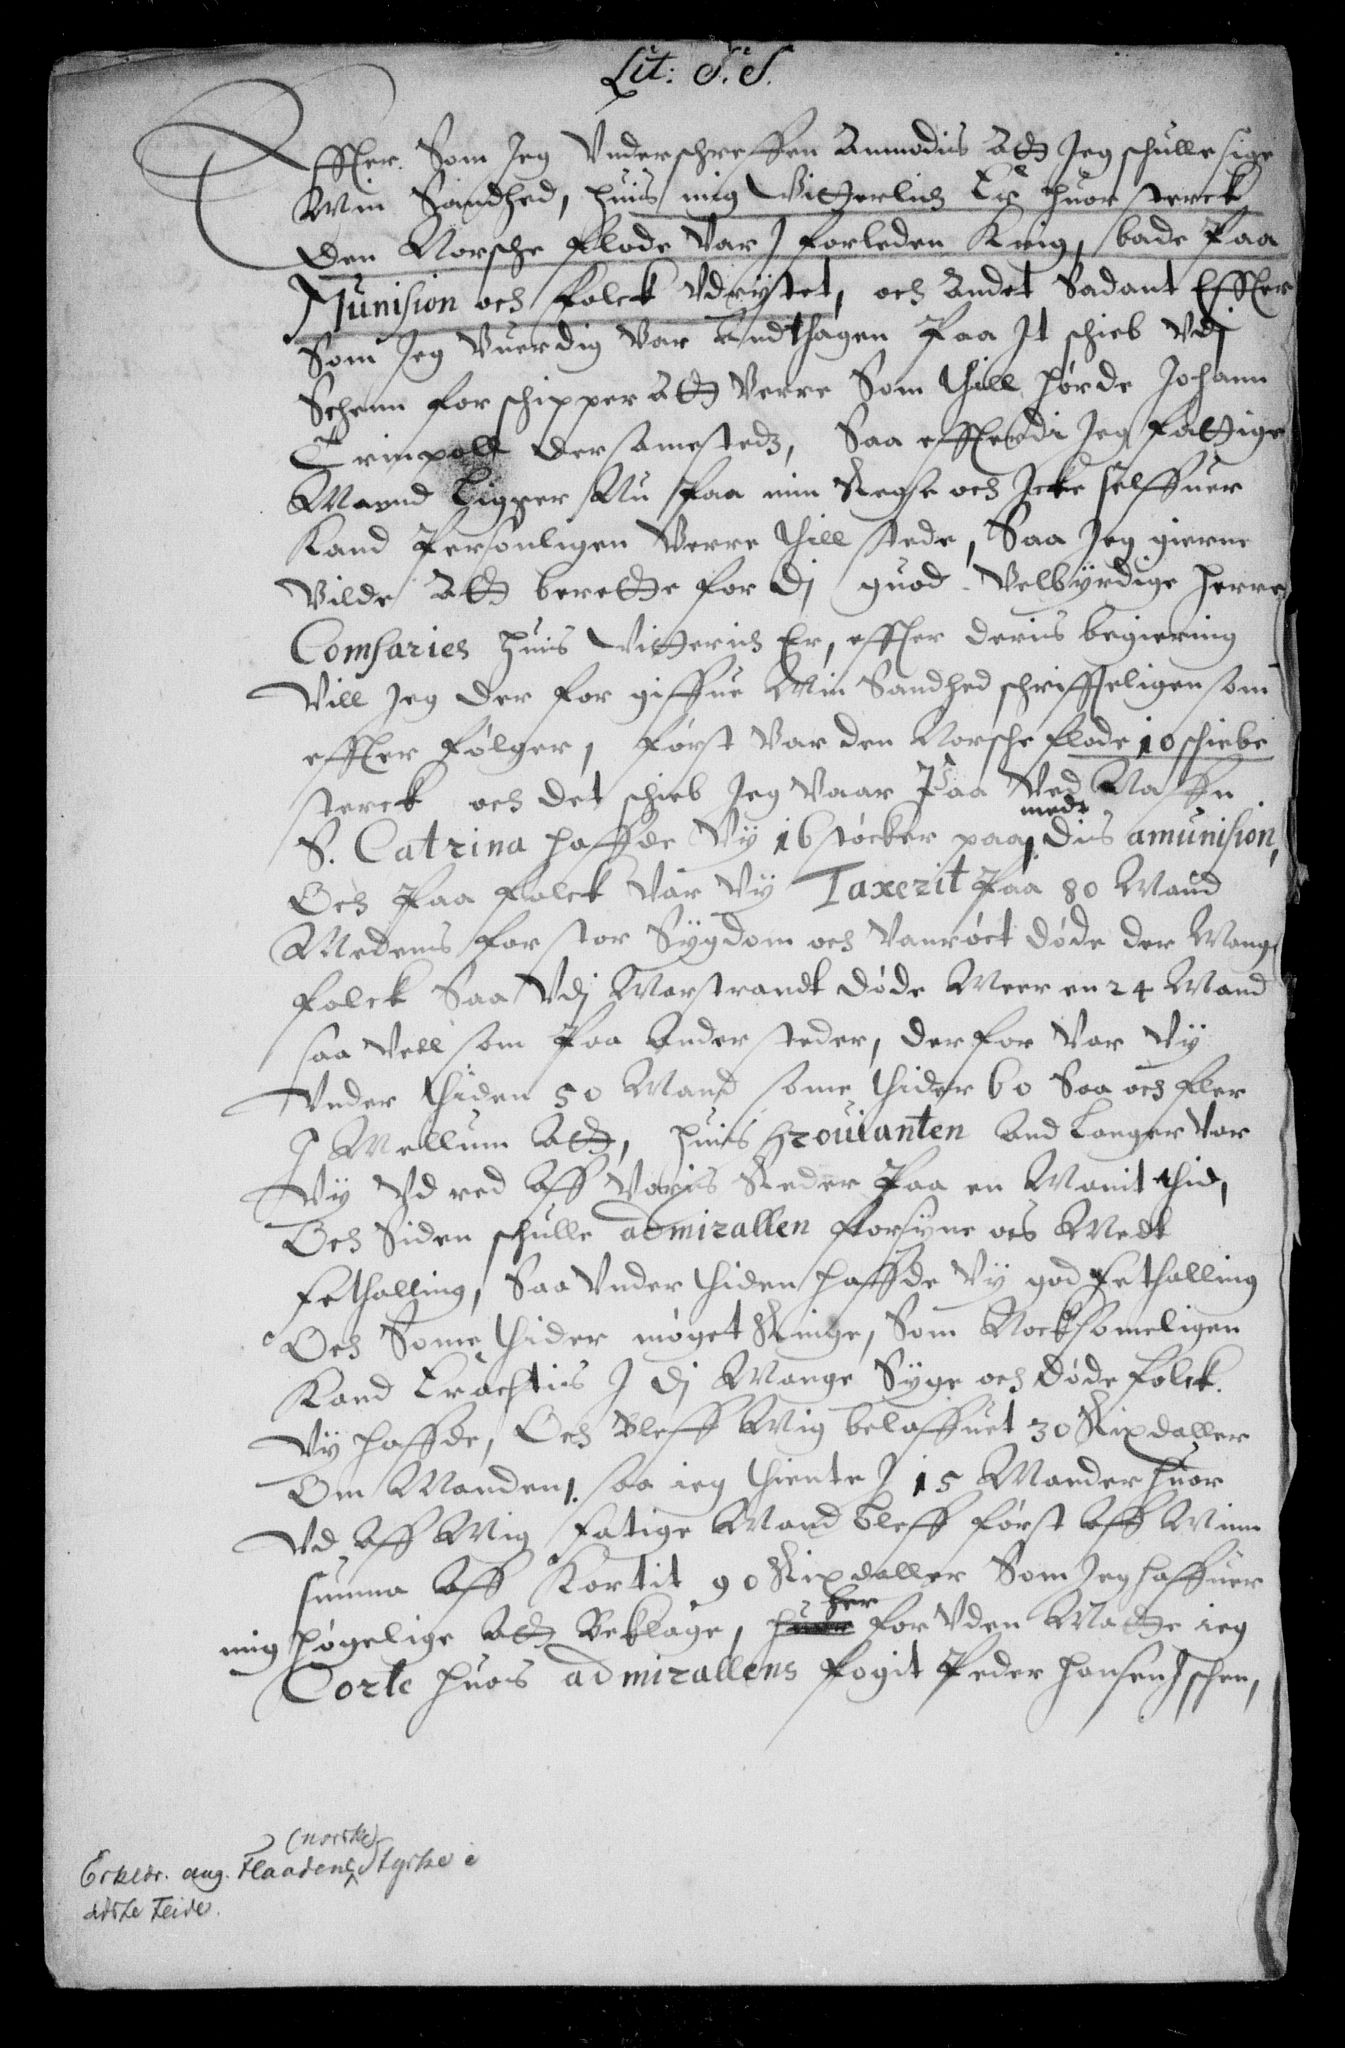 Lit: S. S.
Effter Som Jeg Underschreffen Anmodis Att Jeg schulle sige
Min Sandhed, huis mig Vitterligh Er huor sterck
den Norsche flode Var J forleden Krig, bade Paa
Munision och folck Udrystet, och andet Sadant Effter
Som Jeg Vuerdig Var Andthagen Paa Jt schieb Udj
Scheen for schipper Att Verre Som thill hørde Johann
Trinpoll dersamestedz, Saa effterdi Jeg fattige
Mannd Ligger Nu Paa min Reigse och Jcke Selffuer
Kand Personligen Verre thill stede, Saa Jeg gierne
Vilde Att berette for Dj guod Velbyrdige herre
Comsaries huis Vitterich Er, effter deris begiering
Vill Jeg der for giffue Min Sandhed schrifftligen som
effter følger, først Var den Norsche flode 10 schiebe
sterck och det schieb Jeg Vaar Paa Ved Naffn
S. Catrina haffde Vy 16 støcker paa, med dis amunision,
Och Paa folck Var Vy Taxerit Paa 80 Mand
Medens for stor Sygdom och Vanrøct døde der Mang
folck Saa Udj Marstrandt døde Meer en 24 Mand
saa Vell som Paa Ander steder, der for Var Vy
Under thiden 50 Mand some thider 60 Saa och fler
J Mellum Att, huis Prouianten And Langer Var
Vy Ud red Aff Voris Reder Paa en Manit thid,
Och Siden schulle admirallen forsyne os Medt
fethalling, Saa Under thiden haffde Vy god fethalling
Och Some thider møget Ringe, Som Nocksomeligen
Kand Eractis J Dj Mange Syge och døde folck
Vy haffde, Och bleff Mig belaffuet 30 Rixdaller
Om Manden, saa ieg thiente J 15 Maander huor
Ud Aff Mig fatige Mand bleff først Aff Minn
summa Aff Kortit 90 Rixdaller Som Jeg haffuer
mig høgelige Att Beklage, her for Uden Matte ieg
Corte huos admirallens fogit Peder Hansen J schen,
Erklær. ang. Flaadens (norske) Styrke i
sidste Feide.